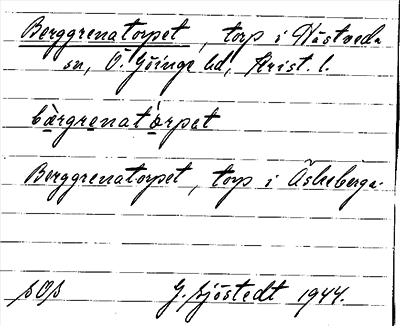 Berggrenatorpet, torp i Västveds
sn, Ö. Göinge hd, Krist. l.
bærgrenatårpet
Berggrenatorpet, torp i Åsbeberga.
sOs G. Sjöstedt 1944.